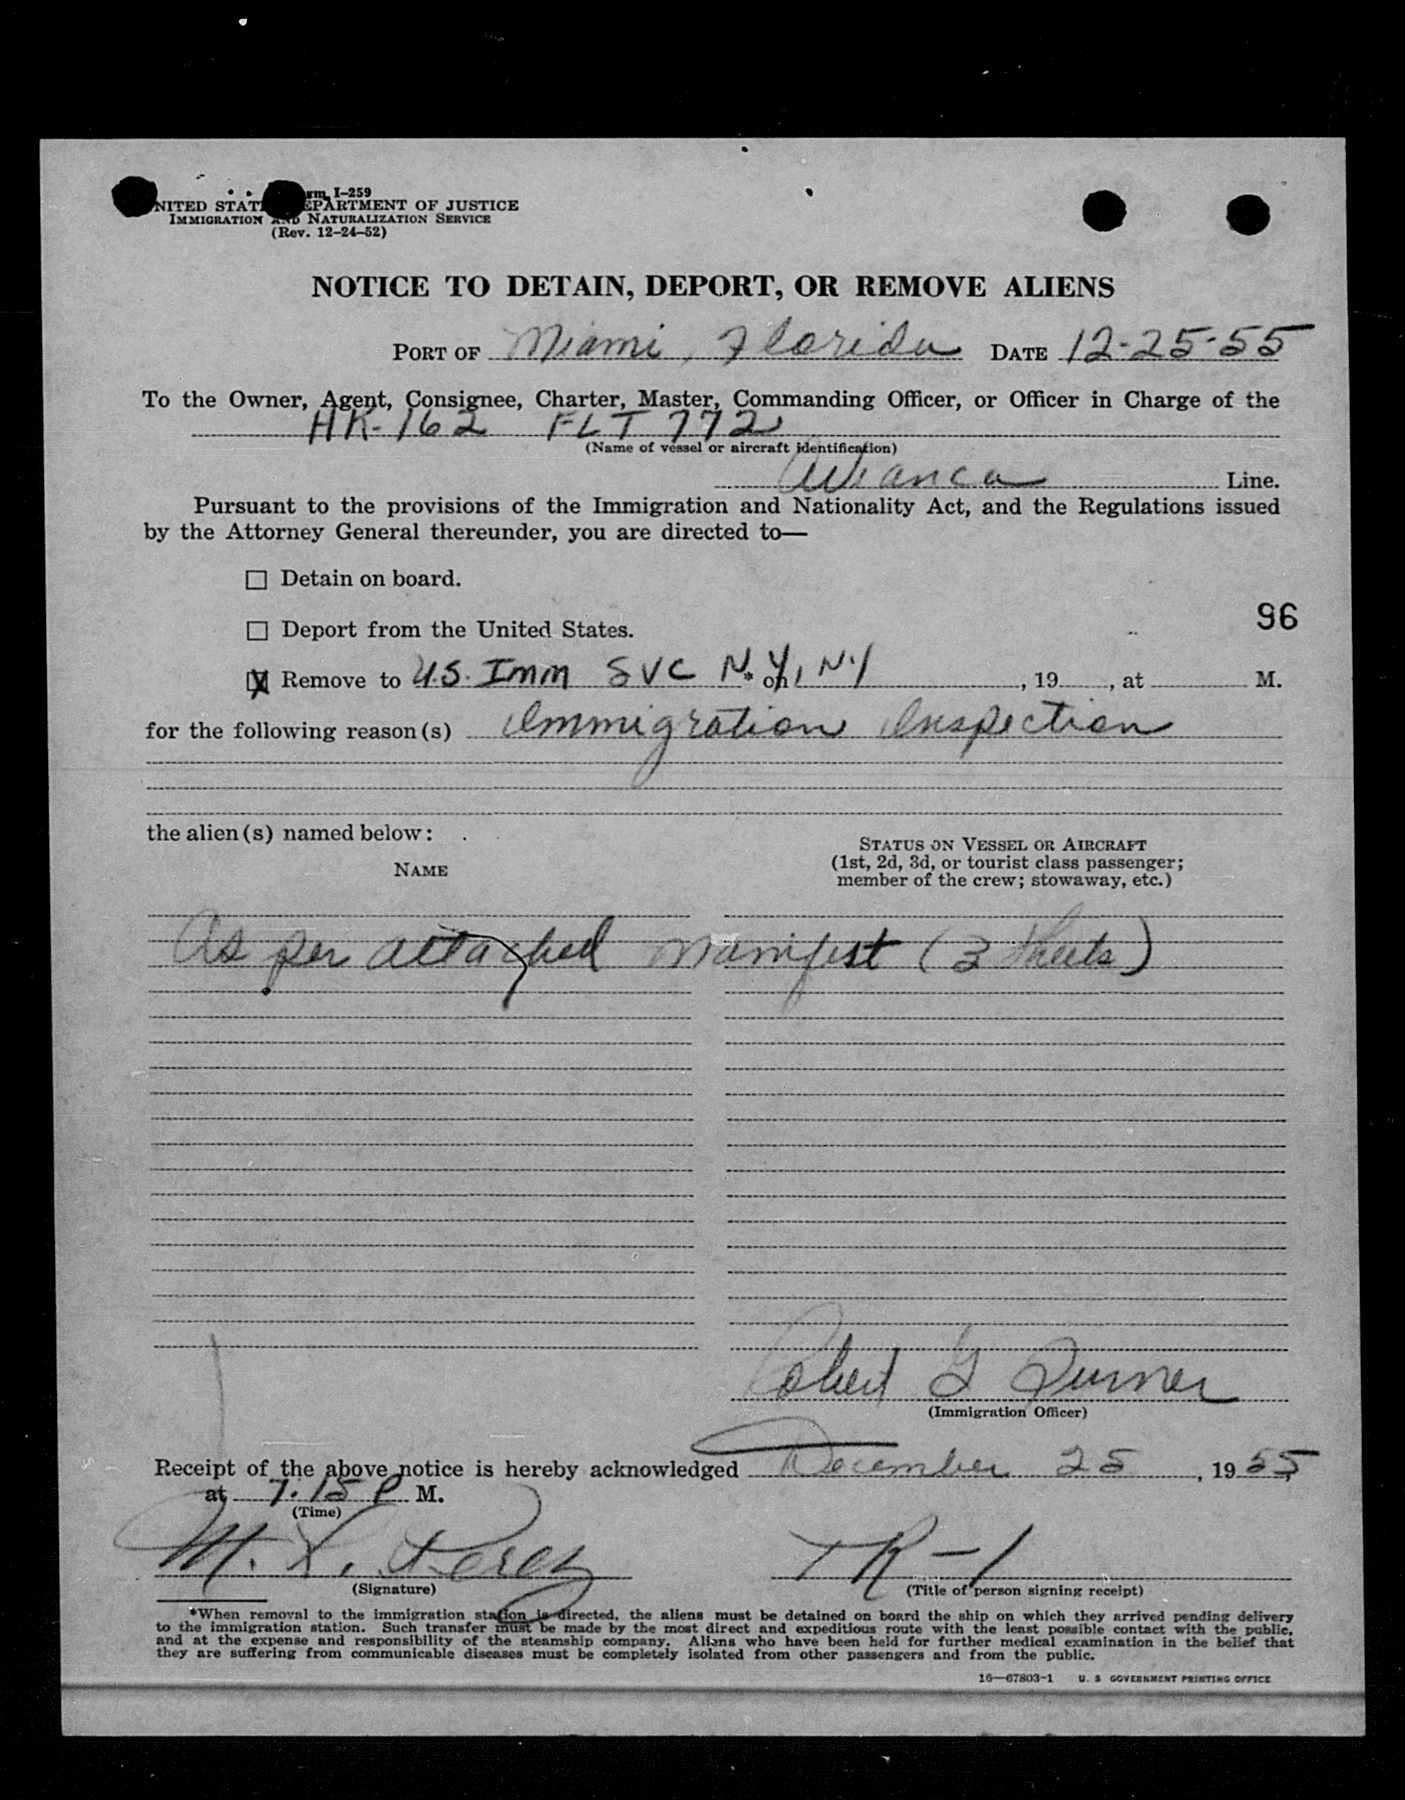 Form I-259
UNITED STATES DEPARTMENT OF JUSTICE
IMMIGRATION AND NATURALIZATION SERVICE
(Rev. 12-24-52)
NOTICE TO DETAIN, DEPORT, OR REMOVE ALIENS
PORT OF Miami, Florida DATE 12-25-55
To the Owner, Agent, Consignee, Charter, Master, Commanding Officer, or Officer in Charge of the
HK-162 FLT 772
(Name of vessel or aircraft identification)
Avianca Line.
Pursuant to the provisions of the Immigration and Nationality Act, and the Regulations issued
by the Attorney General thereunder, you are directed to—
Detain on board.
96
Deport from the United States.
X Remove to U.S. Imm SVC N.Y., N.Y * on , 19 , at M.
for the following reason(s) Immigration Inspection
the alien(s) named below:
NAME
STATUS ON VESSEL OR AIRCRAFT
(1st, 2d, 3d, or tourist class passenger;
member of the crew; stowaway, etc.)
As per attached manifest (3 sheets)
Robert G Turner
(Immigration Officer)
Receipt of the above notice is hereby acknowledged December 25, 1955,
at 7:15 P M.
(Time)
M. L. Perez TR-1
(Signature) (Title of person signing receipt)
*When removal to the immigration station is directed, the aliens must be detained on board the ship on which they arrived pending delivery
to the immigration station. Such transfer must be made by the most direct and expeditious route with the least possible contact with the public,
and at the expense and responsibility of the steamship company. Aliens who have been held for further medical examination in the belief that
they are suffering from communicable diseases must be completely isolated from other passengers and from the public.
16—67803-1 U. S. GOVERNMENT PRINTING OFFICE